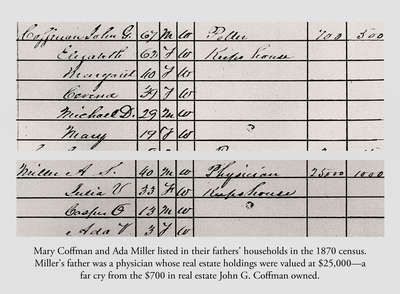 Coffman John G. 67 M W Potter 700 300
Elizabeth 62 F W Keeps house
Margaret 40 F W
39 F W
Michael D. 29 M W
Mary 19 F W
Miller A S. 40 M W Physician 25000 1000
Julia V 33 F W Keeps house
Casper O 13 M W
Ada V 3 F W
Mary Coffman and Ada Miller listed in their fathers' households in the 1870 census.
Miller's father was a physician whose real estate holdings were valued at $25,000—a
far cry from the $700 in real estate John G. Coffman owned.